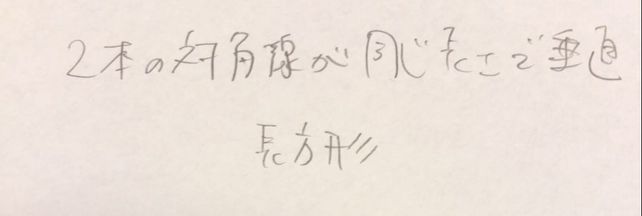 2本の対角線が同じ長さで垂直
長方形